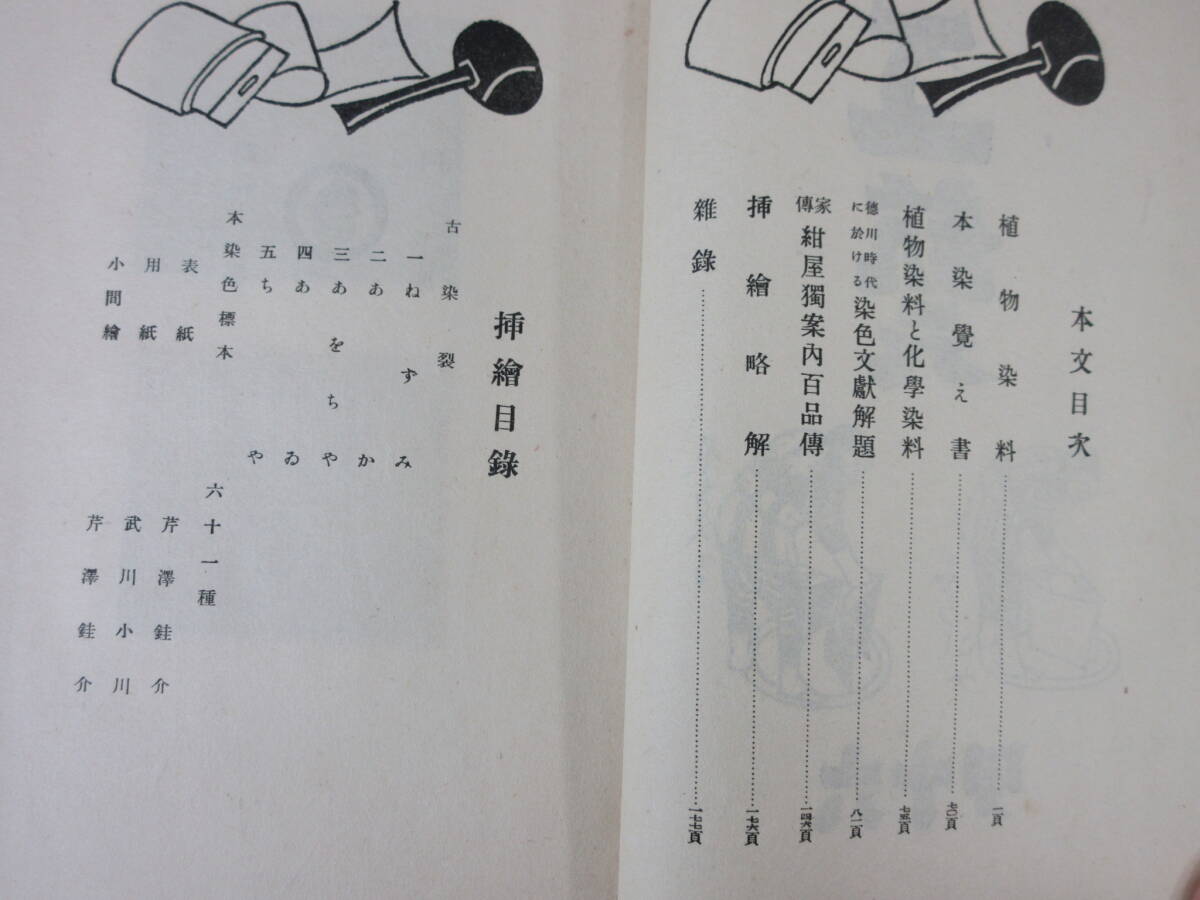 本文目次
植物染料……一頁
本染覺え書……七〇頁
植物染料と化學染料……七五頁
德川時代に於ける染色文獻解題……八一頁
家傳紺屋獨案内百品傳……一四六頁
挿繪略解……一七六頁
雜錄……一七七頁
挿繪目錄
古染裂
一ねずみ
二あか
三あをちや
四あゐ
五ちや
本染色標本 六十一種
表紙 芹澤銈介
用紙 武川小川
小間繪 芹澤銈介